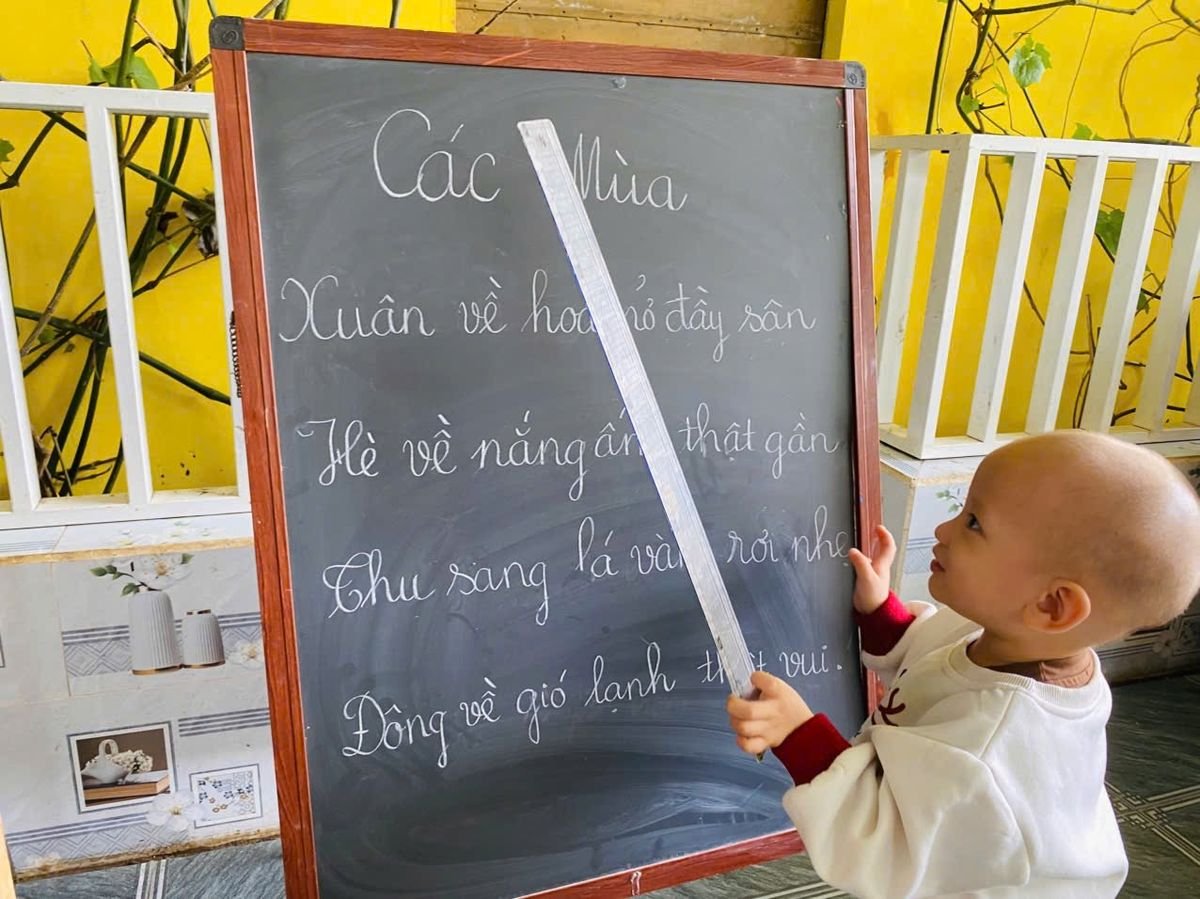 Các Mùa
Xuân về hoa nở đầy sân
Hè về nắng ấm thật gần
Thu sang lá vàng rơi nhẹ
Đông về gió lạnh thật vui.